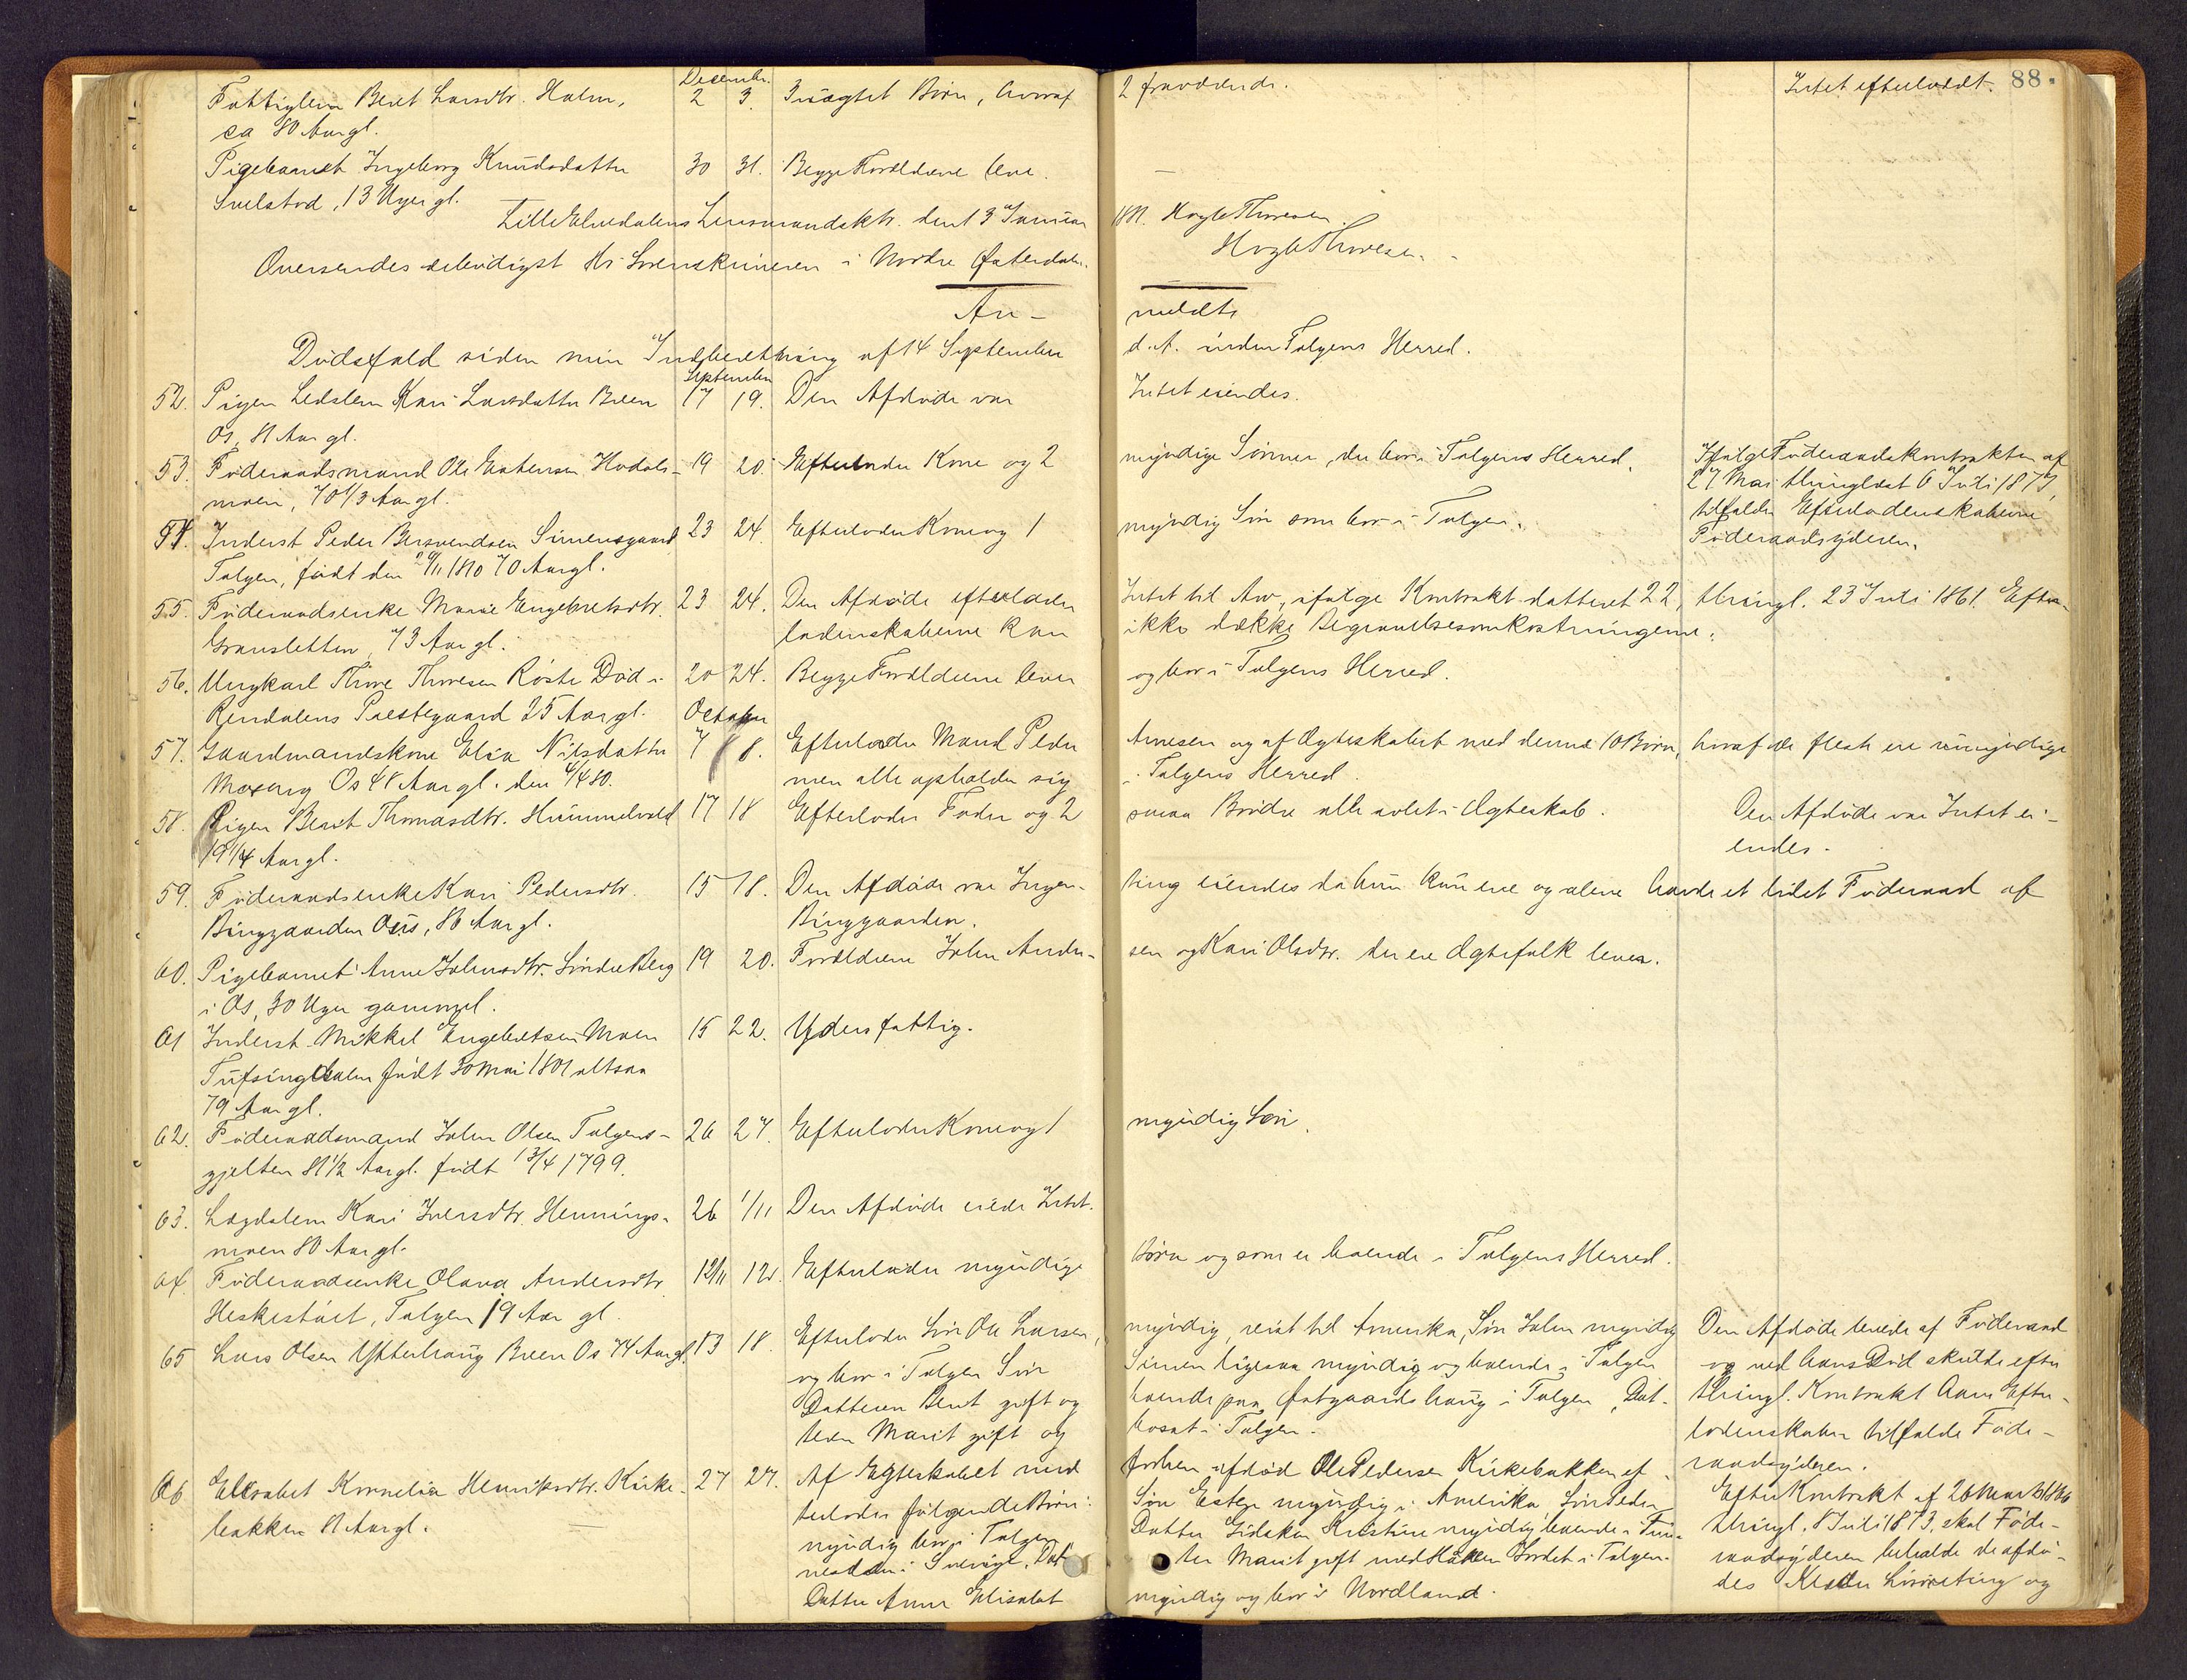 88.
Decembr.
Fattiglem Beret Larsdtr. Holm, 2 3. 3 uægtet Børn, hvoraf 2 fraværende. Intet efterladt.
ca 80 Aar gl.
Pigebarnet Ingeborg Knudsdatter 30 31. Begge Forældrene leve. —
13 Uger gl.
Lille Elvedalens Lensmandsktr. den 13 Januar 1881. Hoyle Thoresen.
Oversendes ærbødigst Hr. Sorenskriveren i Nordre Østerdalen. Hoyle Thoresen.
An- meldte
Dødsfald siden min Indberetning af 14 September d. A. under Tolgens Herred.
September
52. Pigen Ledslem Kari Larsdatter Breen 17 19. Den Afdøde var Intet eiendes.
Os, 81 Aar gl.
53. Føderaadsmand Ole Estensen Hodals- 19 20. Efterlader Kone og 2 myndige Sønner, der bor i Tolgens Herred. Ifølge Føderaadskontrakten af
moen, 70 1/3 Aar gl. 27 Mai thinglæst 6 Juli 1877,
tilfalder Efterladenskaberne
Føderaadsyderen.
54. Inderst Peder Bersvendsen Simensgaard 23 24. Efterlader Kone og 1 myndig Søn som bor i Tolgen.
Tolgen, født den 20/11 1810 70 Aar gl.
55. Føderaadsenke Marie Engebretsdtr. 23 24. Den Afdøde efterlader Intet til Arv, ifølge Kontrakt datteret 22, thingl. 23 Juli 1861. Efter-
73 Aar gl. ladenskaberne kan ikke dække Begravelsesomkostningerne.
56. Ungkarl Thore Thoresen Røste Død i 20 24. Begge Forældrene lever og bor i Tolgens Herred.
Rendalens Præstegaard 25 Aar gl.
October
57. Gaardmandskone Elia Nilsdatter 7 8. Efterlader Mand Peder Arnesen og af Ægteskabet med denne 10 Børn, hvoraf de fleste ere umyndige
Moseng Os 48 Aar gl. den 4/4 80. men alle opholder sig i Tolgens Herred.
58. Pigen Berit Thomasdtr. Hummelvold 17 18 Efterlader Fader og 2 smaa Brødre alle avlet i Ægteskab. Den Afdøde var Intet ei-
19 1/4 Aar gl. endes.
59. Føderaadsenke Kari Pedersdtr. 15 18. Den Afdøde var Ingen- ting eiendes da hun kun ene og alene havde et lidet Føderaad af
Binggaarden Os, 86 Aar gl. Binggaarden.
60. Pigebarnet Anne Johnsdtr. Søndre Berg 19 20. Forældrene John Ander- sen og Kari Olsdtr. der ere Ægtefolk lever.
i Os, 30 Uger gammel.
61 Inderst Mikkel Engebretsen Moen 15 22. Yders fattig.
Tufsingdalen født 30 Mai 1801 altsaa
79 Aar gl.
62. Føderaadsmand John Olsen Tolgens- 26 27. Efterlader Kone og 1 myndig Søn.
gjelten 81 1/2 Aar gl. født 13/4 1799.
63. Lægdslem Kari Iversdtr. Hennings- 26 1/11 Den Afdøde eiede Intet.
moen 80 Aar gl.
64. Føderaadsenke Olava Andersdtr. 12/11 12. Efterlader myndige Børn og som er boende i Tolgens Herred.
Tolgen 79 Aar gl.
65 Lars Olsen Ytterhaug Breen Os 74 Aar gl. 13 18. Efterlader Søn Ole Larsen, myndig, reist til Amerika, Søn John myndig Den Afdøde levede af Føderaad
og bor i Tolgen Søn Simen ligesaa myndig og boende i Tolgen og ved hans Død skulde efter
Datteren Berit gift og boende paa Østgaardshaug i Tolgen, Dat- thingl. Kontrakt hans Efter-
teren Marit gift og bosat i Tolgen. ladenskaber tilfalde Føde-
raadsyderen.
66 Elisabet Kornelia Henriksdtr. Kirke- 27 27. Af Egteskabet med forhen afdød Ole Pedersen Kirkebakken ef- Efter Kontrakt af 26 Marts 1866
bakken 81 Aar gl. terlader følgende Børn: Søn Esten myndig i Amerika, Søn Peder thingl. 8 Juli 1873, skal Føde-
myndig bor i Tolgen Datter Kristine myndig boende i raadsyderen beholde de afdø-
i Sverige, Dat- ter Marit gift med Haken i Tolgen. des og
Datter Anne Elisabet myndig og bor i Nordland.